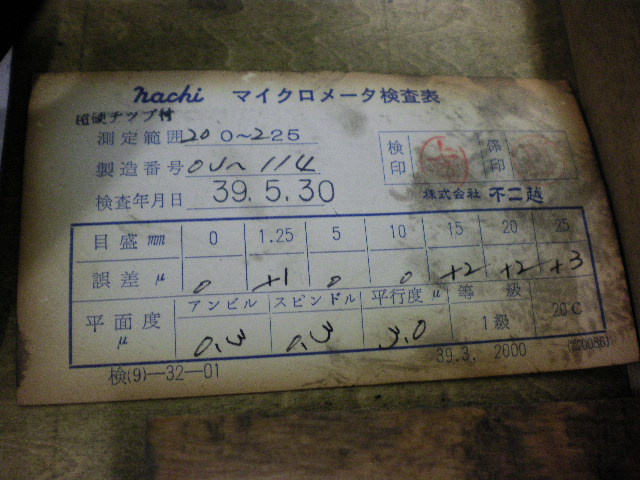 nachi マイクロメータ検査表
超硬チップ付
測定範囲 200~225
製造番号 114
検査年月日 39.5.30
検印
株式会社 不二越
目盛 mm 0 1.25 5 10 15 20 25
誤差 μ 0 +1 0 0 +2 +2 +3
平面度 μ アンビル スピンドル 平行度 μ 等級 20℃
0.3 0.3 3.0 1級
検(9)-32-01 39.3. 2000